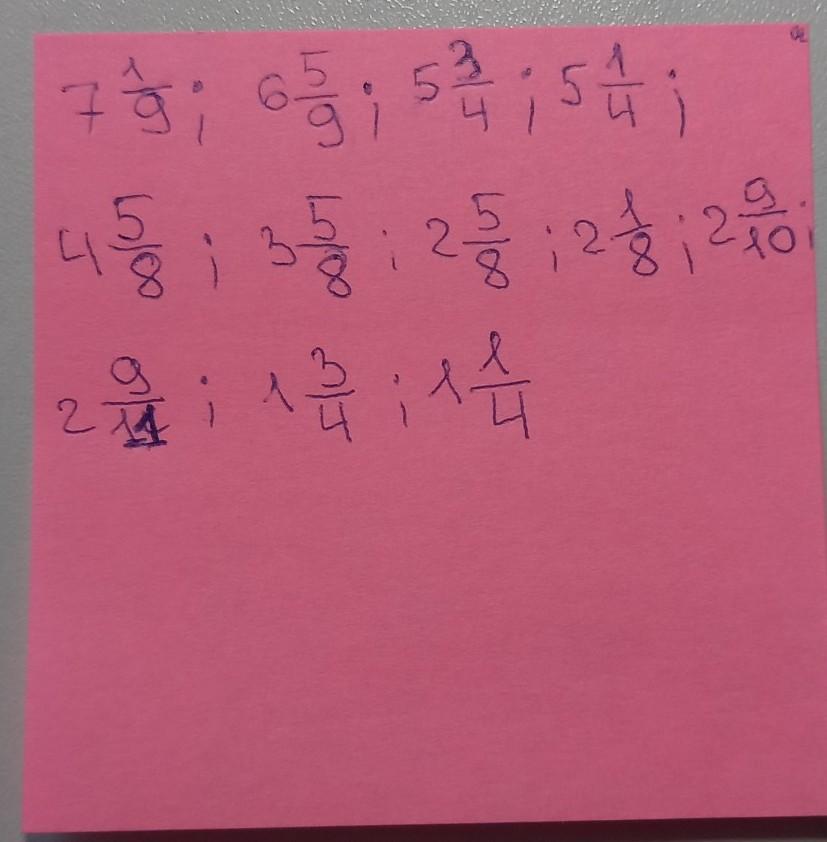 7 1/9; 6 5/9; 5 3/4; 5 1/4;
4 5/8; 3 5/8; 2 5/8; 2 1/8; 2 9/10;
2 9/11; 1 3/4; 1 1/4